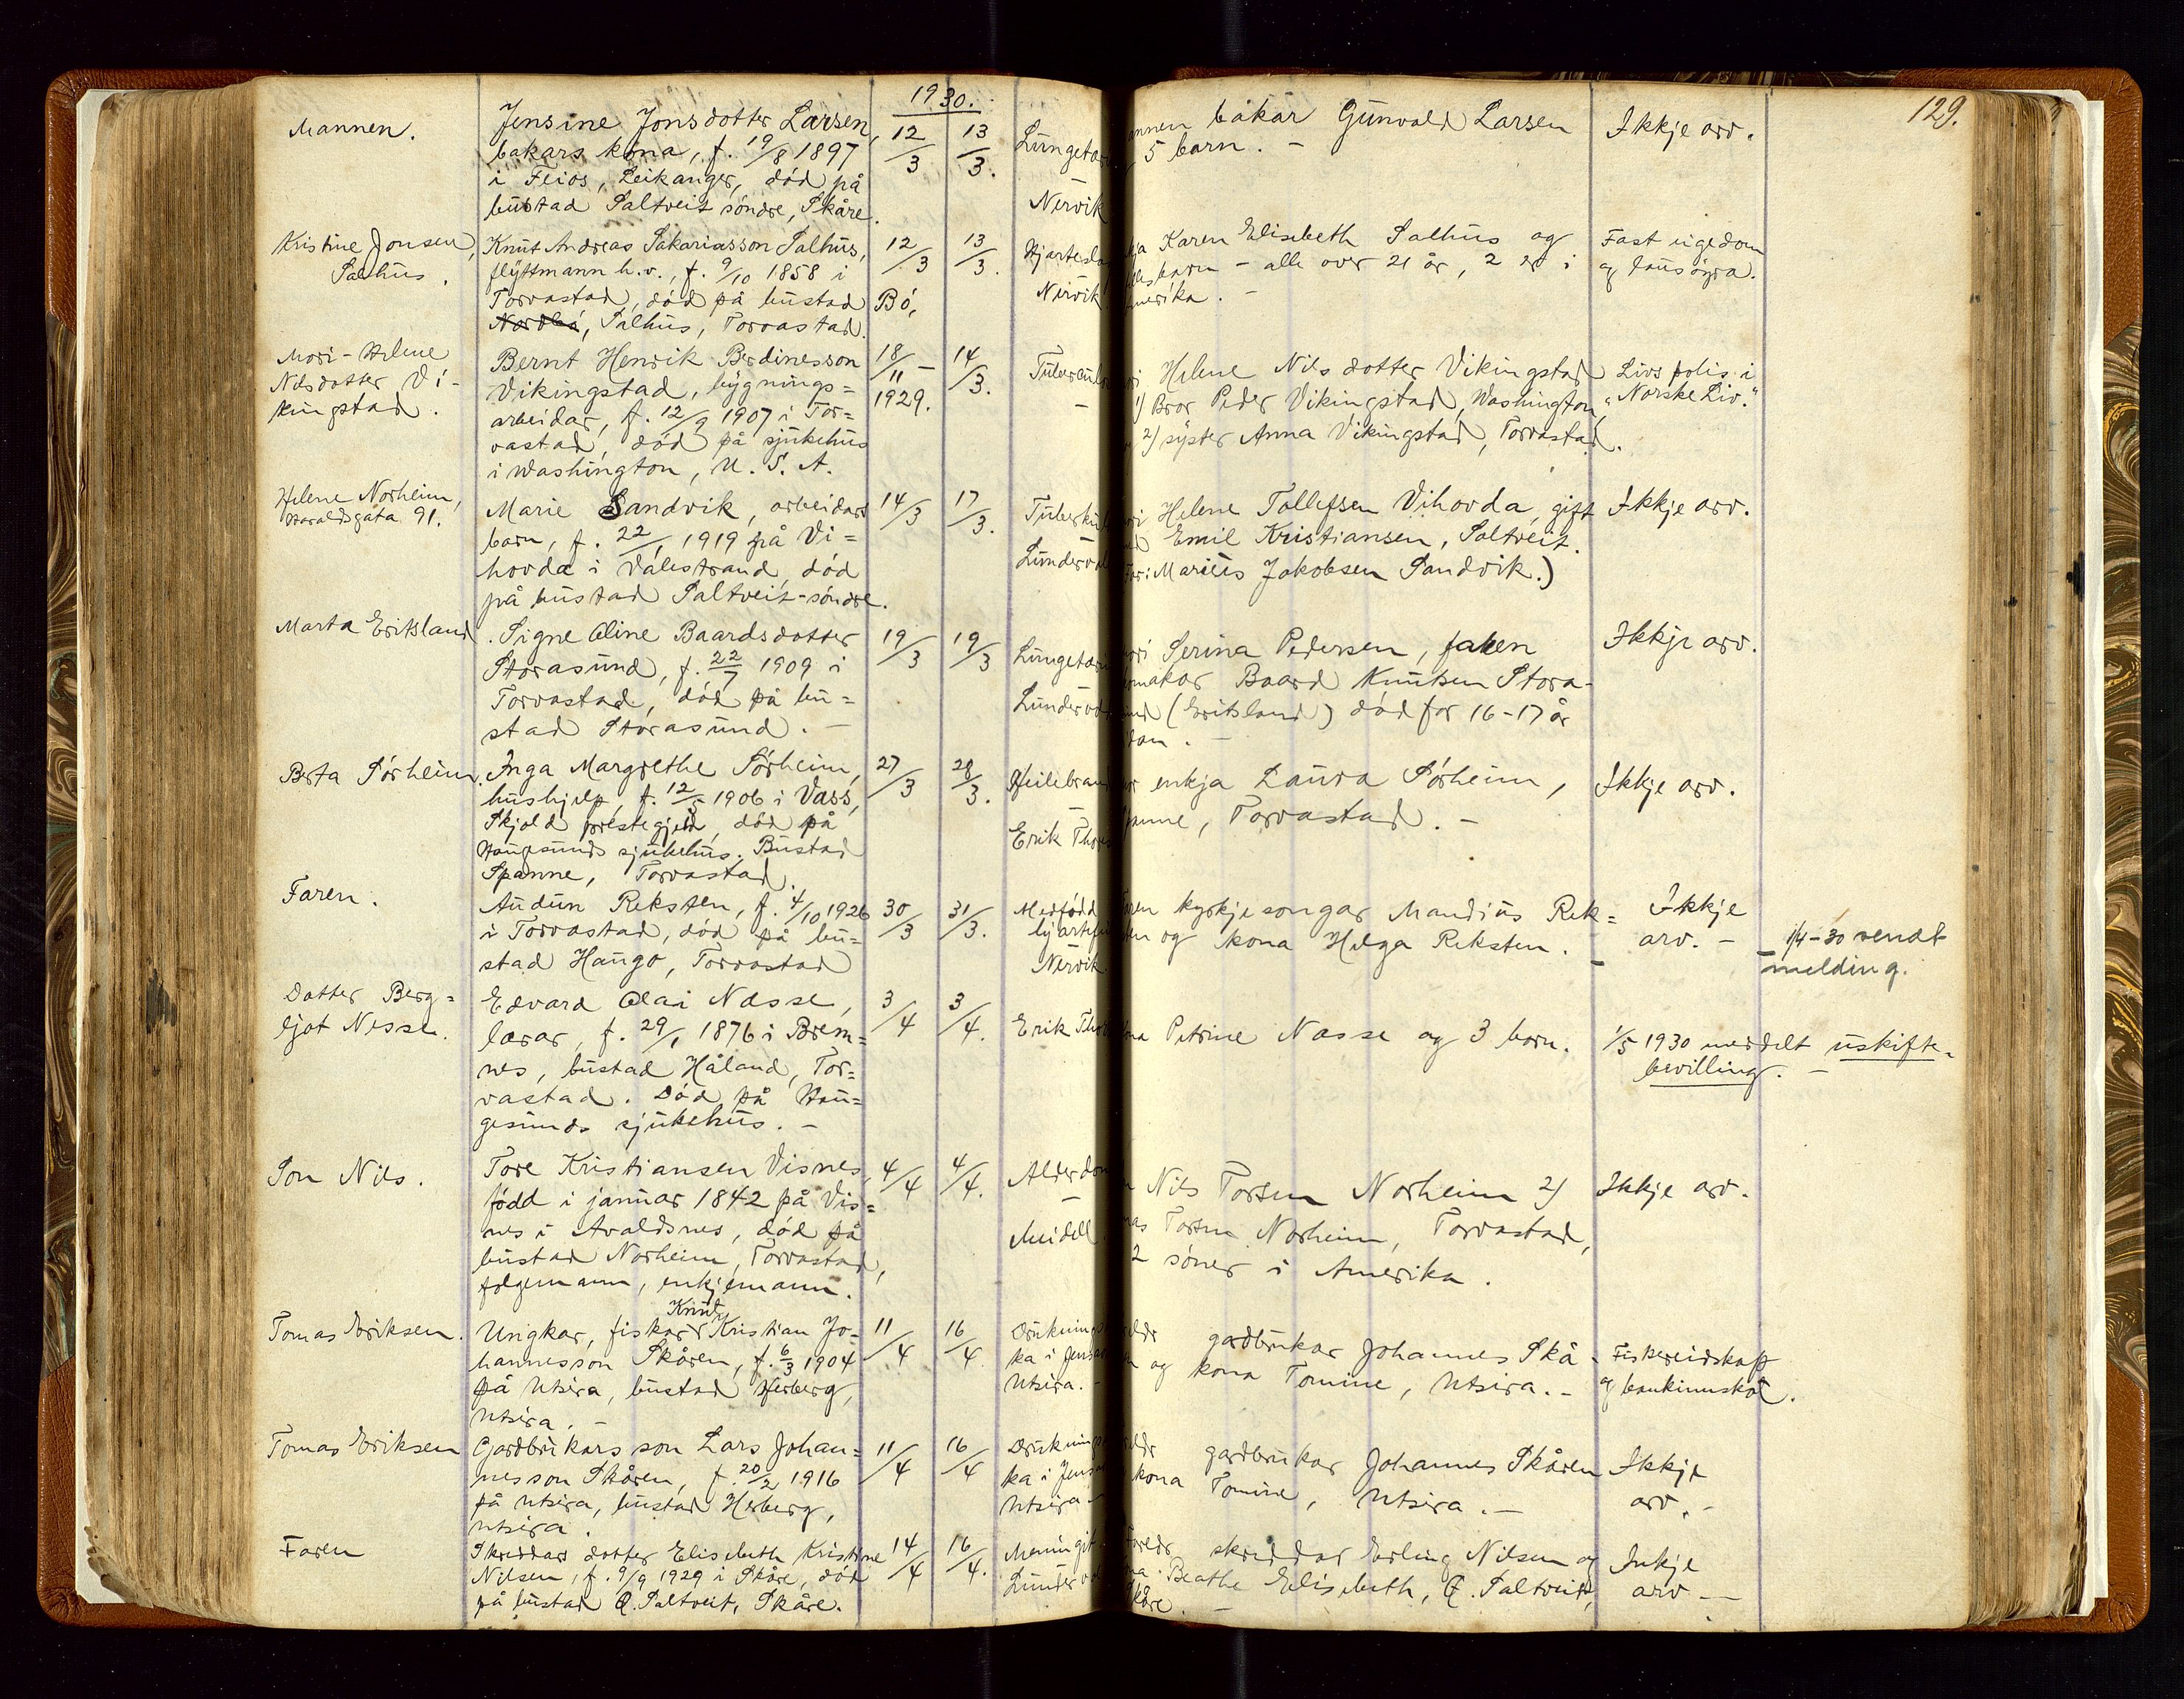 1930.
129.
Mannen.
Jensine Jonsdotter Larsen,
bakars kona, f. 19/8 1897
i Feios, Leikanger, död på
bustad Saltveit söndre, Skåre.
12/3
13/3.
Lungetær
Nervik
mannen bakar Gunvald Larsen
5 barn. -
Ikkje arv.
Kristine Jonsen,
Salhus.
Knut Andreas Sakariasson Salhus,
flyttmann h.v., f. 9/10 1858 i
Torvastad, död på bustad
Nordbö, Salhus, Torvastad.
12/3
Bö,
13/3.
Hjartesla
Nervik
Karen Elisabeth Salhus og
barn - alle over 21 år, 2 er i
merika. -
Fast eigedom
og lausöyra.
Mori - Helene
Nilsdotter Vi-
kingstad.
Bernt Henrik Berdinesson
Vikingstad, bygnings=
arbeidar, f. 12/9 1907 i Tor=
vastad, död på sjukehus
i Washington, U.S.A.
18/11 -
1929.
14/3.
Tubercul
-
Helene Nilsdotter Vikingstad
1) Bror Peder Vikingstad, Washington,
2) syster Anna Vikingstad, Torvastad.
Livspolis i
"Norske Liv."
Helene Norheim,
Haraldsgata 91.
Marie Sandvik, arbeidar
barn, f. 22/1 1919 på Vi=
hovda i Valestrand, död
på bustad Saltveit-söndre.
14/3
17/3.
Tuberkul
Lundervol
Helene Tollefsen Vihovda, gift
Emil Kristiansen, Saltveit.
Far: Marius Jakobsen Sandvik.)
Ikkje arv.
Marta Eritsland.
Signe Oline Baardsdotter
Storasund, f. 22/7 1909 i
Torvastad, död på bu=
stad Storasund. -
19/3
19/3
Lungetær
Lundervol
mori Serina Pedersen, faren
Baard Knutsen Stora-
sund (Eritsland) död for 16-17 år
sidan. -
Ikkje arv.
Berta Sörheim.
Inga Margrethe Sörheim,
hushjelp, f. 12/5 1906 i Vass,
Skjold prestegjeld, död på
Haugesunds sjukehus. Bustad
Spanne, Torvastad.
27/3
28/3.
Erik Thor
enkja Laura Sörheim,
Spanne, Torvastad. -
Ikkje arv.
Faren.
Audun Reksten, f. 4/10 1926
i Torvastad, död på bu=
stad Haugo, Torvastad
30/3
31/3.
Medfödd
hjartef
Nervik
Faren kyrkjesongar Mandius Rek=
sten og kona Helga Reksten. -
Ikkje
arv. -
1/4-30 sendt
melding.
Dotter Berg=
ljot Nesse.
Edvard Olai Nesse,
lærar, f. 29/1 1876 i Brem=
nes, bustad Håland, Tor=
vastad. Död på Hau=
gesunds sjukehus. -
3/4
3/4.
Erik Tho
kona Petrine Nesse og 3 born.
1/5 1930 meddelt uskifte-
bevilling. -
Son Nils.
Tore Kristiansen Visnes,
född i januar 1842 på Vis=
nes i Avaldsnes, död på
bustad Norheim, Torvastad,
folgemann, enkjemann.
4/4
4/4.
Alderdom
-
Meidell
Nils Torsen Norheim 2)
Torsen Norheim, Torvastad,
2 söner i Amerika.
Ikkje arv.
Tomas Eriksen.
Knut
Ungkar, fiskar Kristian Jo-
hannesson Skåren, f. 6/3 1904
på Utsira, bustad Herberg,
Utsira. -
11/4
16/4
Drukning
Utsira. -
gardbrukar Johannes Skå-
ren og kona Tomine, Utsira. -
Fiskereidskap
og bankinnskot.
Tomas Eriksen
Gardbrukars son Lars Johan=
nesson Skåren, f. 20/2 1916
på Utsira, bustad Herberg,
Utsira.
11/4
16/4
Drukning
Utsira -
gardbrukar Johannes Skåren
kona Tomine, Utsira. -
Ikkje
arv. -
Faren
Skreddar dotter Elisabeth Kristine
Nilsen, f. 9/9 1929 i Skåre, död
på bustad Ö. Saltveit, Skåre.
14/4
16/4.
Meningit
Lundervol
Foreldr skreddar Erling Nilsen og
kona Beathe Elisabeth, Ö. Saltveit,
Skåre. -
Inkje
arv -